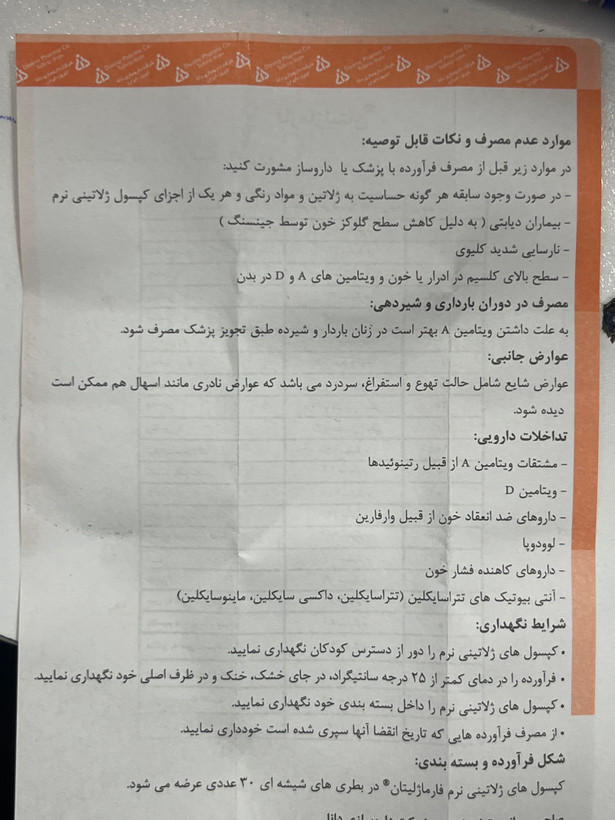 موارد عدم مصرف و نکات قابل توصیه:
در موارد زیر قبل از مصرف فرآورده با پزشک یا داروساز مشورت کنید:
- در صورت وجود سابقه هر گونه حساسیت به ژلاتین و مواد رنگی و هر یک از اجزای کپسول ژلاتینی نرم
- بیماران دیابتی ( به دلیل کاهش سطح گلوکز خون توسط جینسنگ )
- نارسایی شدید کلیوی
- سطح بالای کلسیم در ادرار یا خون و ویتامین های A و D در بدن
مصرف در دوران بارداری و شیردهی:
به علت داشتن ویتامین A بهتر است در زنان باردار و شیرده طبق تجویز پزشک مصرف شود.
عوارض جانبی:
عوارض شایع شامل حالت تهوع و استفراغ، سردرد می باشد که عوارض نادری مانند اسهال هم ممکن است
دیده شود.
تداخلات دارویی:
- مشتقات ویتامین A از قبیل رتینوئیدها
- ویتامین D
- داروهای ضد انعقاد خون از قبیل وارفارین
- لوودوپا
- داروهای کاهنده فشار خون
- آنتی بیوتیک های تتراسایکلین (تتراسایکلین، داکسی سایکلین، ماینوسایکلین)
شرایط نگهداری:
• کپسول های ژلاتینی نرم را دور از دسترس کودکان نگهداری نمایید.
• فرآورده را در دمای کمتر از ۲۵ درجه سانتیگراد، در جای خشک، خنک و در ظرف اصلی خود نگهداری نمایید.
• کپسول های ژلاتینی نرم را داخل بسته بندی خود نگهداری نمایید.
• از مصرف فرآورده هایی که تاریخ انقضا آنها سپری شده است خودداری نمایید.
شکل فرآورده و بسته بندی:
کپسول های ژلاتینی نرم فارماژلیتان® در بطری های شیشه ای ۳۰ عددی عرضه می شود.